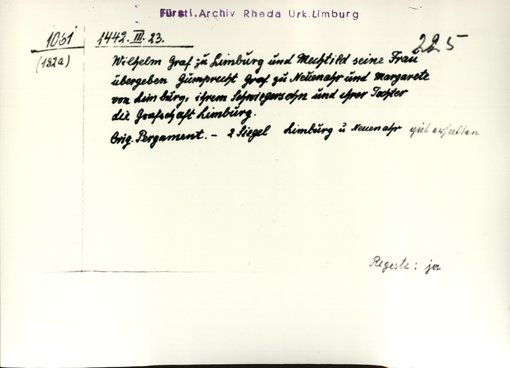 Fürstl. Archiv Rheda Urk. Limburg
1061 1442. III. 23. 225
(182a)
Wilhelm Graf zu Limburg und Mechtild seine Frau
übergeben Gumprecht Graf zu Neuenahr und Margarete
von Limburg, ihrem Schwiegersohn und ihrer Tochter
die Grafschaft Limburg.
Orig. Pergament. - 2 Siegel Limburg u Neuenahr gut erhalten
Regeste: ja